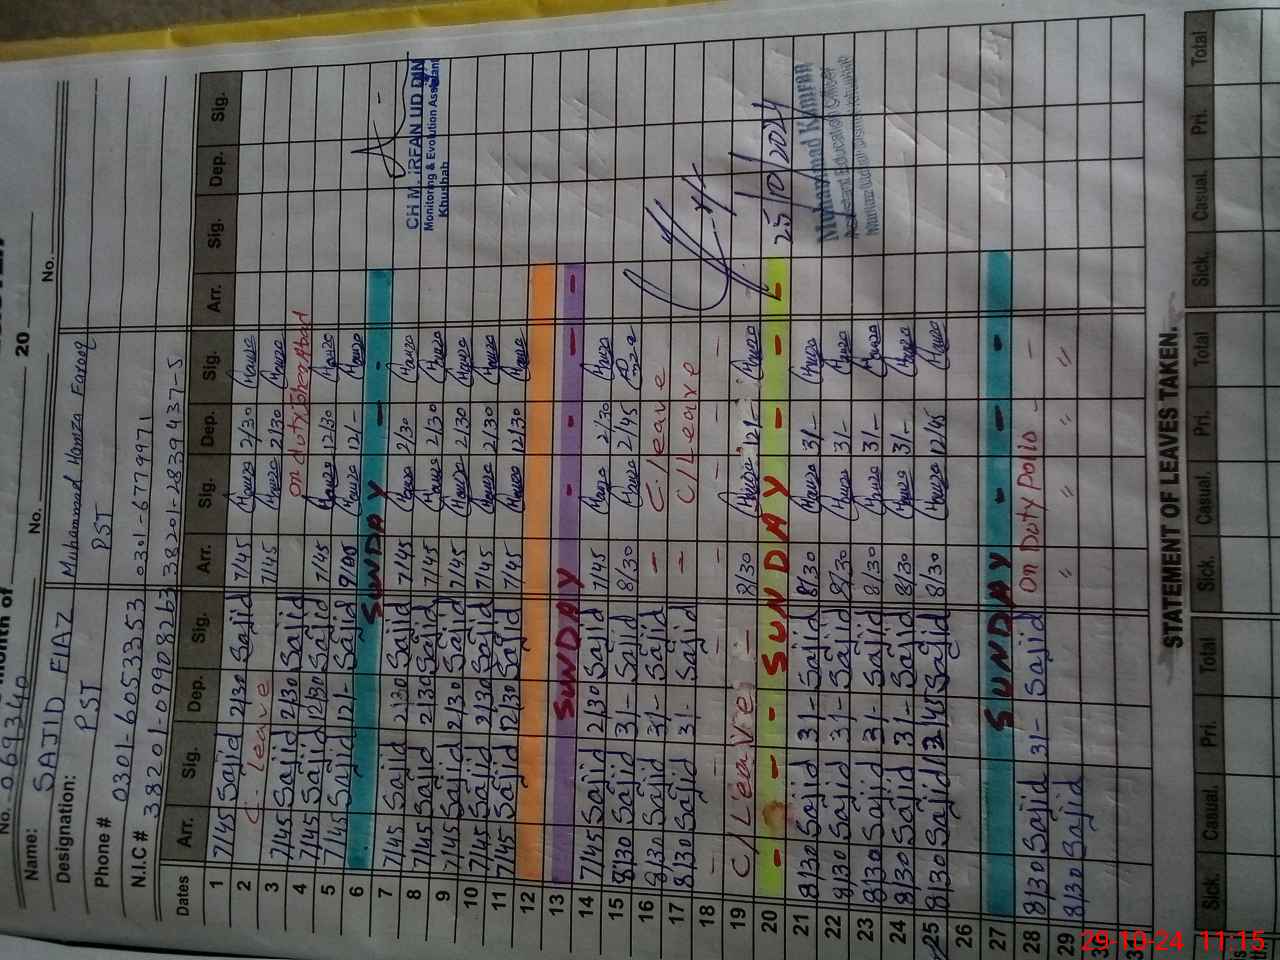 Month of 20
No. 069340 No. No.
Name: SAJID FIAZ Muhammad Hamza Farooq
Designation: PST PST
Phone # 0301-6053353 0301-6779971
N.I.C # 38201-0990826-3 38201-2839437-5
Dates Arr. Sig. Dep. Sig. Arr. Sig. Dep. Sig. Arr. Sig. Dep. Sig.
1 7/45 Sajid 2/30 Sajid 7/45 Hamza 2/30 Hamza
2 C. Leave 7/45 Hamza 2/30 Hamza
3 7/45 Sajid 2/30 Sajid on duty
4 7/45 Sajid 12/30 Sajid 7/45 Hamza 12/30 Hamza
5 7/45 Sajid 12/- Sajid 9/00 Hamza 12/- Hamza
6 SUNDAY - -
7 7/45 Sajid 2/30 Sajid 7/45 Hamza 2/30 Hamza
8 7/45 Sajid 2/30 Sajid 7/45 Hamza 2/30 Hamza
CH M. IRFAN UD DIN
Monitoring & Evolution Assistant
Khushab
9 7/45 Sajid 2/30 Sajid 7/45 Hamza 2/30 Hamza
10 7/45 Sajid 2/30 Sajid 7/45 Hamza 2/30 Hamza
11 7/45 Sajid 12/30 Sajid 7/45 Hamza 12/30 Hamza
12
13 SUNDAY - - - -
14 7/45 Sajid 2/30 Sajid 7/45 Hamza 2/30 Hamza
15 8/30 Sajid 3/- Sajid 8/30 Hamza 2/45 Hamza
16 8/30 Sajid 3/- Sajid - C/leave
17 8/30 Sajid 3/- Sajid - C/Leave
18 - - - - - - - -
19 C/Leave - 8/30 Hamza 12/- Hamza
20 - - - SUNDAY - - -
25/10/2024
21 8/30 Sajid 3/- Sajid 8/30 Hamza 3/- Hamza
Muhammad Kamran
Assistant Education Officer
22 8/30 Sajid 3/- Sajid 8/30 Hamza 3/- Hamza
23 8/30 Sajid 3/- Sajid 8/30 Hamza 3/- Hamza
24 8/30 Sajid 3/- Sajid 8/30 Hamza 3/- Hamza
25 8/30 Sajid 12/45 Sajid 8/30 Hamza 12/45 Hamza
26
27 SUNDAY - - -
28 8/30 Sajid 3/- Sajid On Duty Polio - -
29 8/30 Sajid " " " "
STATEMENT OF LEAVES TAKEN.
Sick. Casual. Pri. Total Sick. Casual. Pri. Total Sick. Casual. Pri. Total
29-10-24 11:15